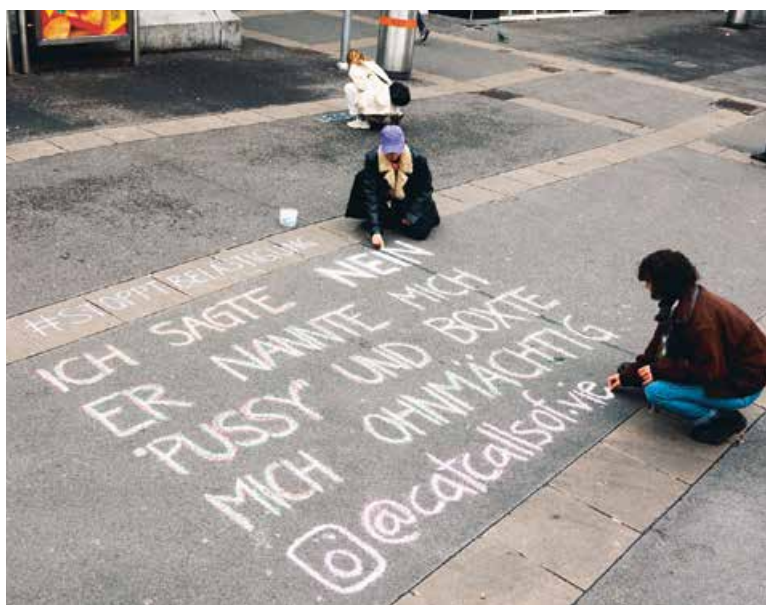 #STOPPTBELÄSTIGUNG
ICH SAGTE NEIN
ER NANNTE MICH
"PUSSY" UND BOXTE
MICH OHNMÄCHTIG
@catcallsof.vie